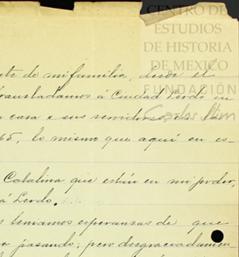 CENTRO DE
ESTUDIOS
DE HISTORIA
DE MEXICO
FUNDACIÓN
de mi familia, desde el
trasladamos á Ciudad Lerdo in
casa e sus servidores
65, lo mismo que aquí en es-
Catalina que están en mi poder,
á Lerdo.
teniamos esperanzas de que
pasando; pero desgraciadamen